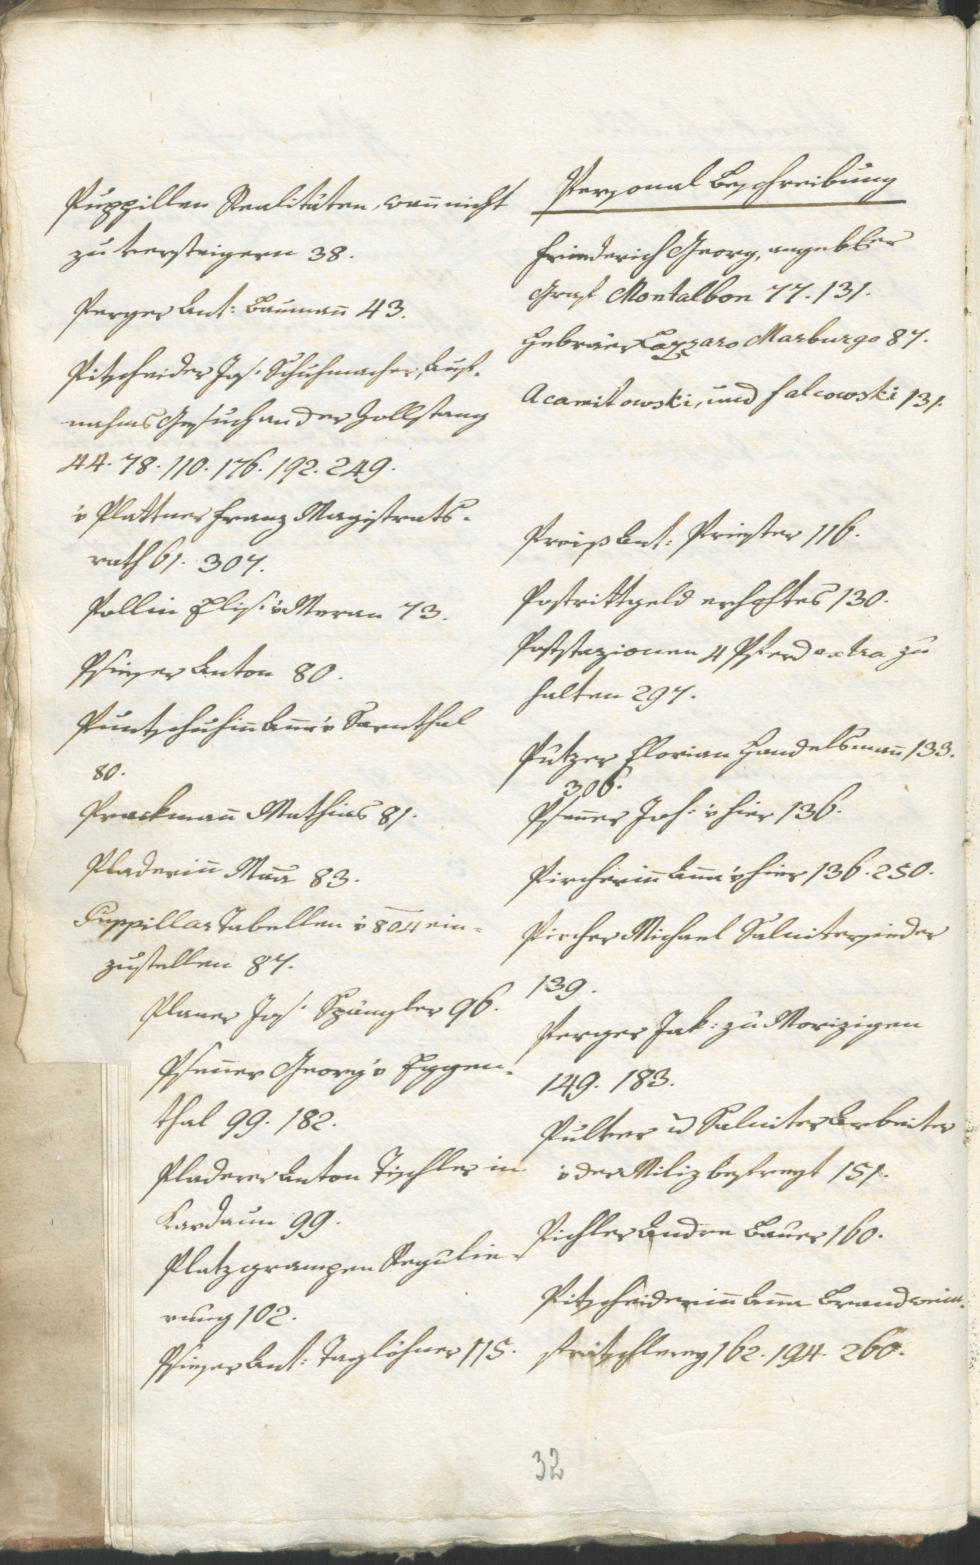 Puppillen Realitäten, wañ nicht
zu versteigern 38.
Perger Ant: Baumañ 43.
Pitscheider Jos: Schuhmacher, Auf-
nahms Gesuch an der Zollstang
44. 78. 110. 176. 192. 249.
v Plattner Franz Magistrats-
rath 61. 307.
Pollin Elis: v Meran 73.
Anton 80.
v Sarnthal
80.
Prackmañ Mathias 81.
Pladeriñ Maria 83.
Puppillar Tabellen v 804 ein-
zustellen 87.
Planer Jos: Spängler 96.
Psenner Georg v Eggen-
thal 99. 182.
Pladerer Anton Tischler in
Kardaun 99.
Platzgrampen Regulie-
rung 102.
Ant: Taglöhner 115.
Personal Beschreibung
Friederich Georg, angebl:er
Graf Montalbon 77. 131.
Hebräer Lazzaro Marburgo 87.
Acamitowski, und Falcowski 131.
Preiß Ant: Priester 116.
Postrittgeld erhöhtes 130.
Poststazionen 4 Pferd extra zu
halten 297.
Putzer Florian Handelsmañ 133.
306.
Psenner Joh: v hier 136.
Pircheriñ Anna v hier 136. 250.
Pircher Michael Salitersieder
139.
Perger Jak: zu Morizigen
149. 183.
Pulver u Saliter Arbeiter
v der Miliz befreyt 151.
Pichler Andre Bauer 160.
Pitscheideriñ Anna Brandwein-
162. 194. 260.
32